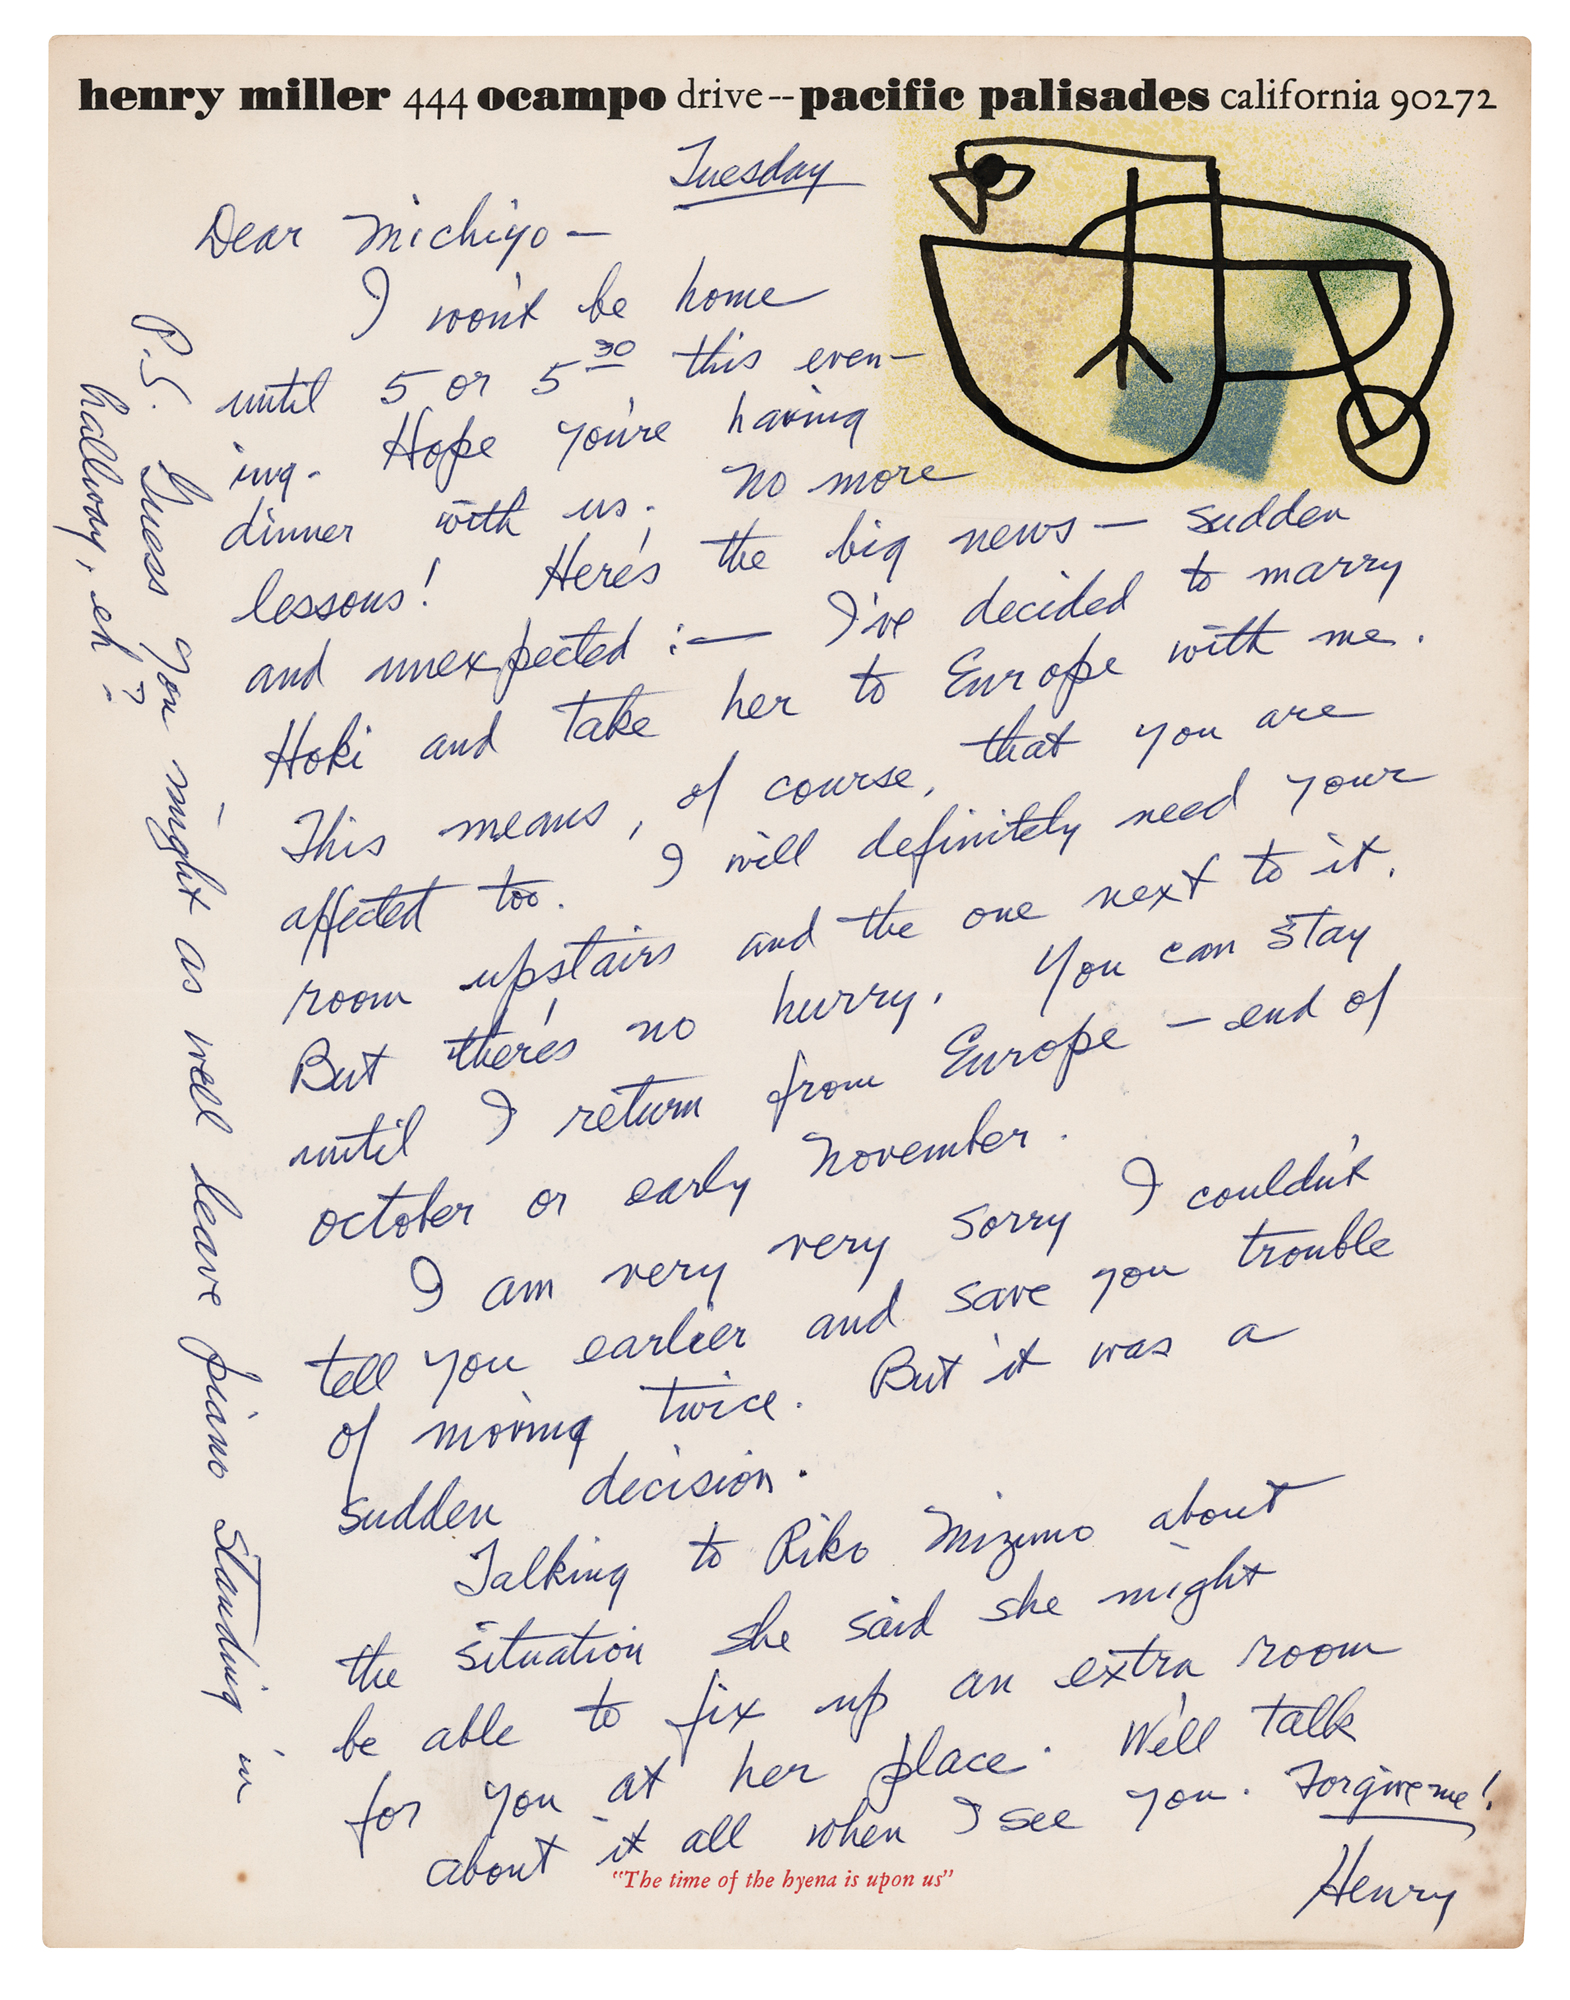 henry miller 444 ocampo drive--pacific palisades california 90272
Tuesday
Dear Michiyo —
I won't be home
until 5 or 5 30 this even-
ing. Hope you're having
dinner with us. No more
lessons! Here's the big news — sudden
and unexpected :— I've decided to marry
Hoki and take her to Europe with me.
This means, of course, that you are
affected too. I will definitely need your
room upstairs and the one next to it.
But there's no hurry. You can stay
until I return from Europe — end of
october or early November.
I am very very sorry I couldn't
tell you earlier and save you trouble
of moving twice. But it was a
sudden decision.
Talking to Riko Mizuno about
the situation she said she might
be able to fix up an extra room
for you at her place. We'll talk
about it all when I see you. Forgive me!
Henry
"The time of the hyena is upon us"
P.S. Guess you might as well leave piano standing in
hallway, eh?